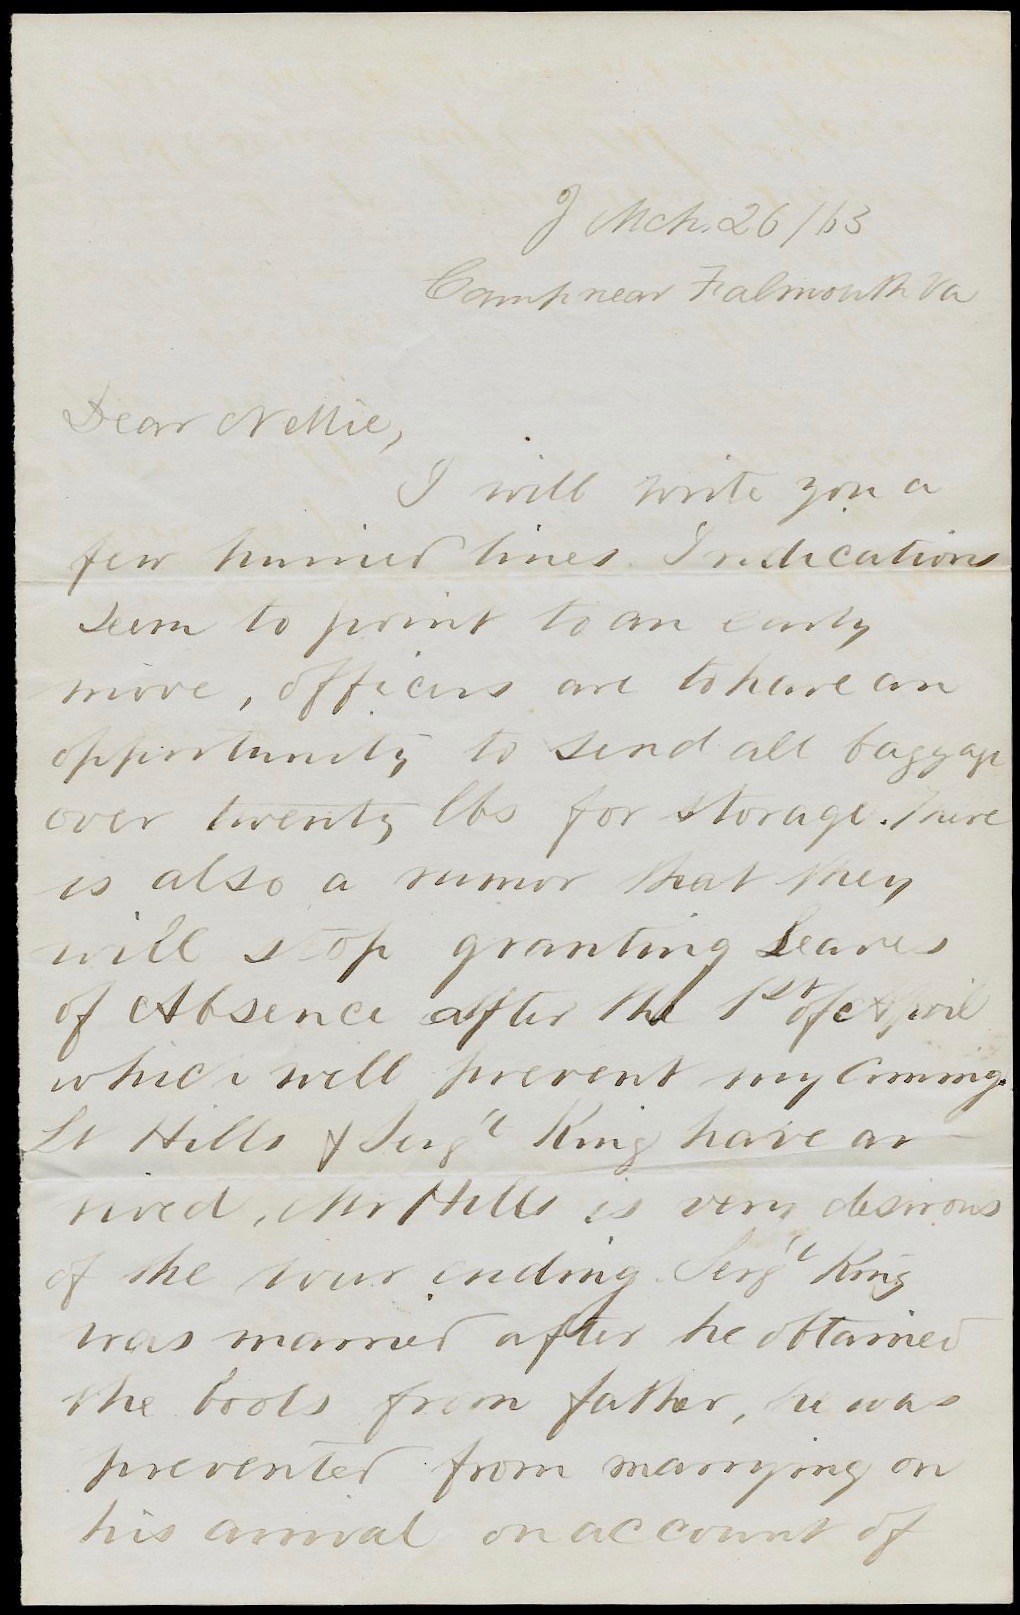 Mch. 26/63
Camp near Falmouth Va
Dear Nellie,
I will write you a
few hurried lines. Indications
seem to point to an early
move, officers are to have an
opportunity to send all baggage
over twenty lbs for storage. There
is also a rumor that they
will stop granting Leaves
of Absence after the 1st of April
which will prevent my coming.
Lt Hills & Serg't King have ar
rived, Mr Hills is very desirous
of the war ending. Serg't King
was married after he obtained
the boots from father, he was
prevented from marrying on
his arrival on account of